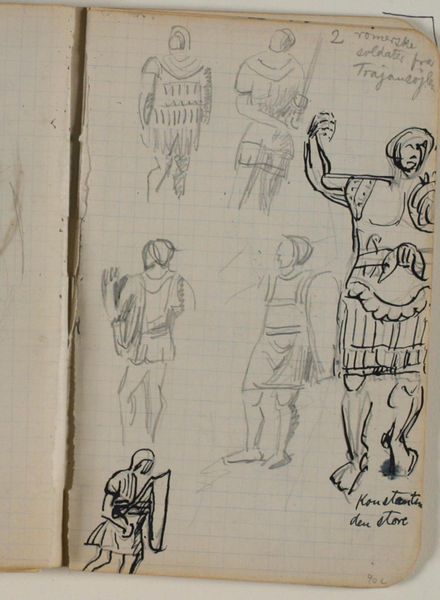 2 romerske
soldater fra
Trajansøjle
Konstantin
den store
90c